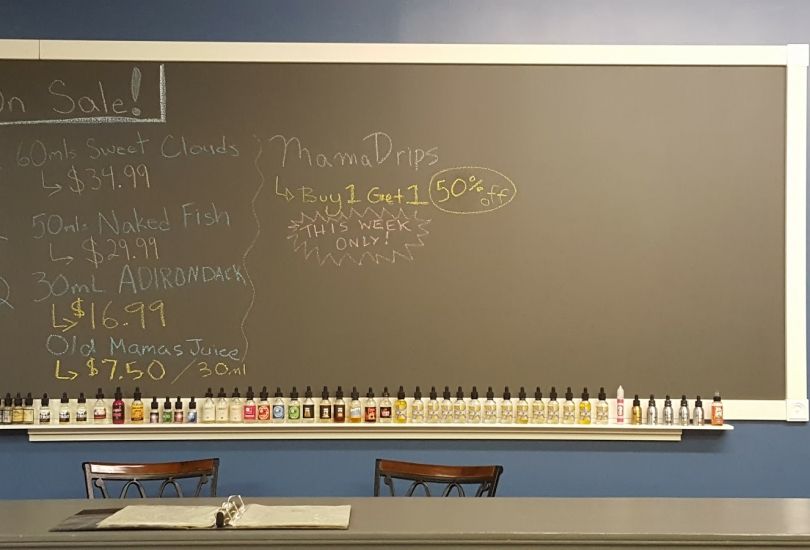 On Sale!
60mls Sweet Clouds
↳ $34.99
50mls Naked Fish
↳ $29.99
30mL ADIRONDACK
↳ $16.99
Old Mamas Juice
↳ $7.50 / 30ml
MamaDrips
↳ Buy 1 Get 1 50% off
THIS WEEK
ONLY!